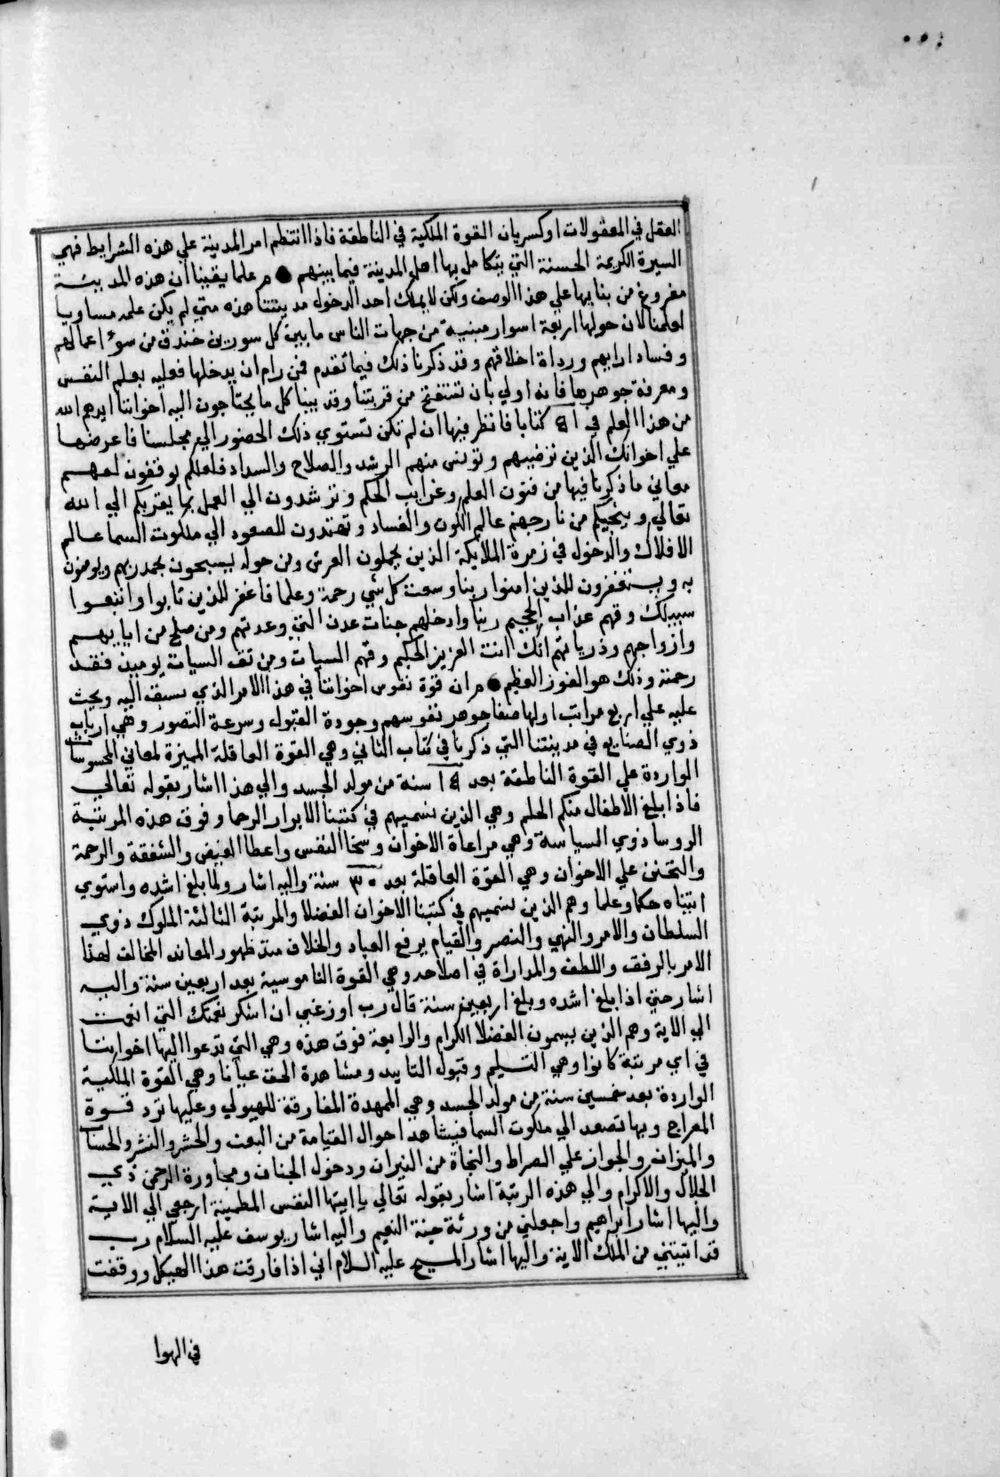 العقل في المعقولات او كسريان القوة الملكية في الناطقة فاذا انتظم امر المدينة علي هذه الشرايط فهي
السيرة الكريمة الحسنة التي يتكامل بها اهل المدينة فيما بينهم ● م علما يقينا ان هذه المدينة
مفروغ من بنايها علي هذا الوصف ولكن لا يمكن احد الدخول مدينتنا هذه متي لم يكن علمه مساويا
لعلمنا لان حولها اربعة اسوار مبنية من جهات الناس ما بين كل سورين خندق من سوء اعمالهم
وفساد ارايهم ورداة اخلاقهم وقد ذكرنا ذلك فيما تقدم فمن رام ان يدخلها فعليه بعلم النفس
ومعرفة جوهرها فانه اولي بان تستفتح من قريتنا وقد بينا كل ما يحتاجون اليه اخواننا ايدهم الله
من هذا العلم في ٥١ كتابا فانظر فيها ان لم تكن تستوي ذلك الحضور الي مجلسنا فاعرضها
علي اخوانك الذين ترضيهم وتونس منهم الرشد والصلاح والسداد فلعلكم توفقون لفهم
معاني ما ذكرنا فيها من فنون العلم وغرايب الحكم وترشدون الي العمل بما يقربكم الي الله
تعالي وينجيكم من نار جهنم عالم الكون والفساد وتهتدون للصعود الي ملكوت السما عالم
الافلاك والدخول في زمرة الملايكة الذين يحملون العرش ومن حوله يسبحون بحمد ربهم ويومنون
به ويستغفرون للذين امنوا ربنا وسعت كل شي رحمة وعلما فاغفر للذين تابوا واتبعوا
سبيلك وقهم عذاب الجحيم ربنا وادخلهم جنات عدن التي وعدتهم ومن صلح من ابايهم
وازواجهم وذرياتهم انك انت العزيز الحكيم وقهم السيات ومن تق السيات يوميذ فقد
رحمته وذلك هو الفوز العظيم ● م ان قوة نفوس اخواننا في هذا الامر الذي نسبق اليه ونحث
عليه علي اربع مراتب اولها صفا جوهر نفوسهم وجودة القبول وسرعة التصور وهي ارباب
ذوي الصنايع في مدينتنا التي ذكرنا في كتاب الثاني وهي القوة العاقلة المميزة لمعاني المحسوسات
الواردة علي القوة الناطقة بعد ١٥ سنة من مولد الجسد والي هذا اشار بقوله تعالي
فاذا بلغ الاطفال منكم الحلم وهي الذين نسميهم في كتبنا الابرار الرحما وفوق هذه المرتبة
الروسا ذوي السياسة وهي مراعاة الاخوان وسخا النفس واعطا الفيض والشفقة والرحمة
والتحنن علي الاخوان وهي القوة العاقلة بعد ٣٠ سنة واليه اشار ولما بلغ اشده واستوي
اتيناه حكما وعلما وهم الذين نسميهم في كتبنا الاخوان الفضلا والمرتبة الثالثة الملوك ذوي
السلطان والامر والنهي والنصر والقيام يرفع العباد والخلاف عند ظهور المعاند المخالف لهذا
الامر بالرفق واللطف والمداراة في اصلاحه وهي القوة الناموسية بعد اربعين سنة واليه
اشار حتي اذا بلغ اشده وبلغ اربعين سنة قال رب اوزعني ان اشكر نعمتك التي انعمت
الي الاية وهم الذين يسمون الفضلا الكرام والرابعة فوق هذه وهي التي ندعوا اليها اخواننا
في اي مرتبة كانوا وهي التسليم وقبول التاييد ومشاهدة الحق عيانا وهي القوة الملكية
الواردة بعد خمسين سنة من مولد الجسد وهي الممهدة المفارقة للهيولي وعليها ترد قوة
المعراج وبها تصعد الي ملكوت السما فيشاهد احوال القيامة من البعث والحشر والنشر والحساب
والميزان والجواز علي الصراط والنجاة من النيران ودخول الجنان ومجاورة الرحمن ذي
الجلال والاكرام والي هذه الرتبة اشار بقوله تعالي يا ايتها النفس المطمينة ارجعي الي الاية
واليها اشار ابراهيم واجعلني من ورثة جنة النعيم واليه اشار يوسف عليه السلام رب
قد اتيتني من الملك الاية واليها اشار المسيح عليه السلام اني اذا فارقت هذا الهيكل ووقفت
في الهوا